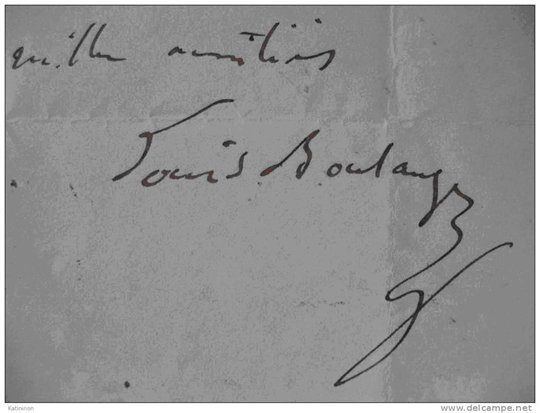 mille amitiés
Louis Boulanger
Katininon
delcampe.net